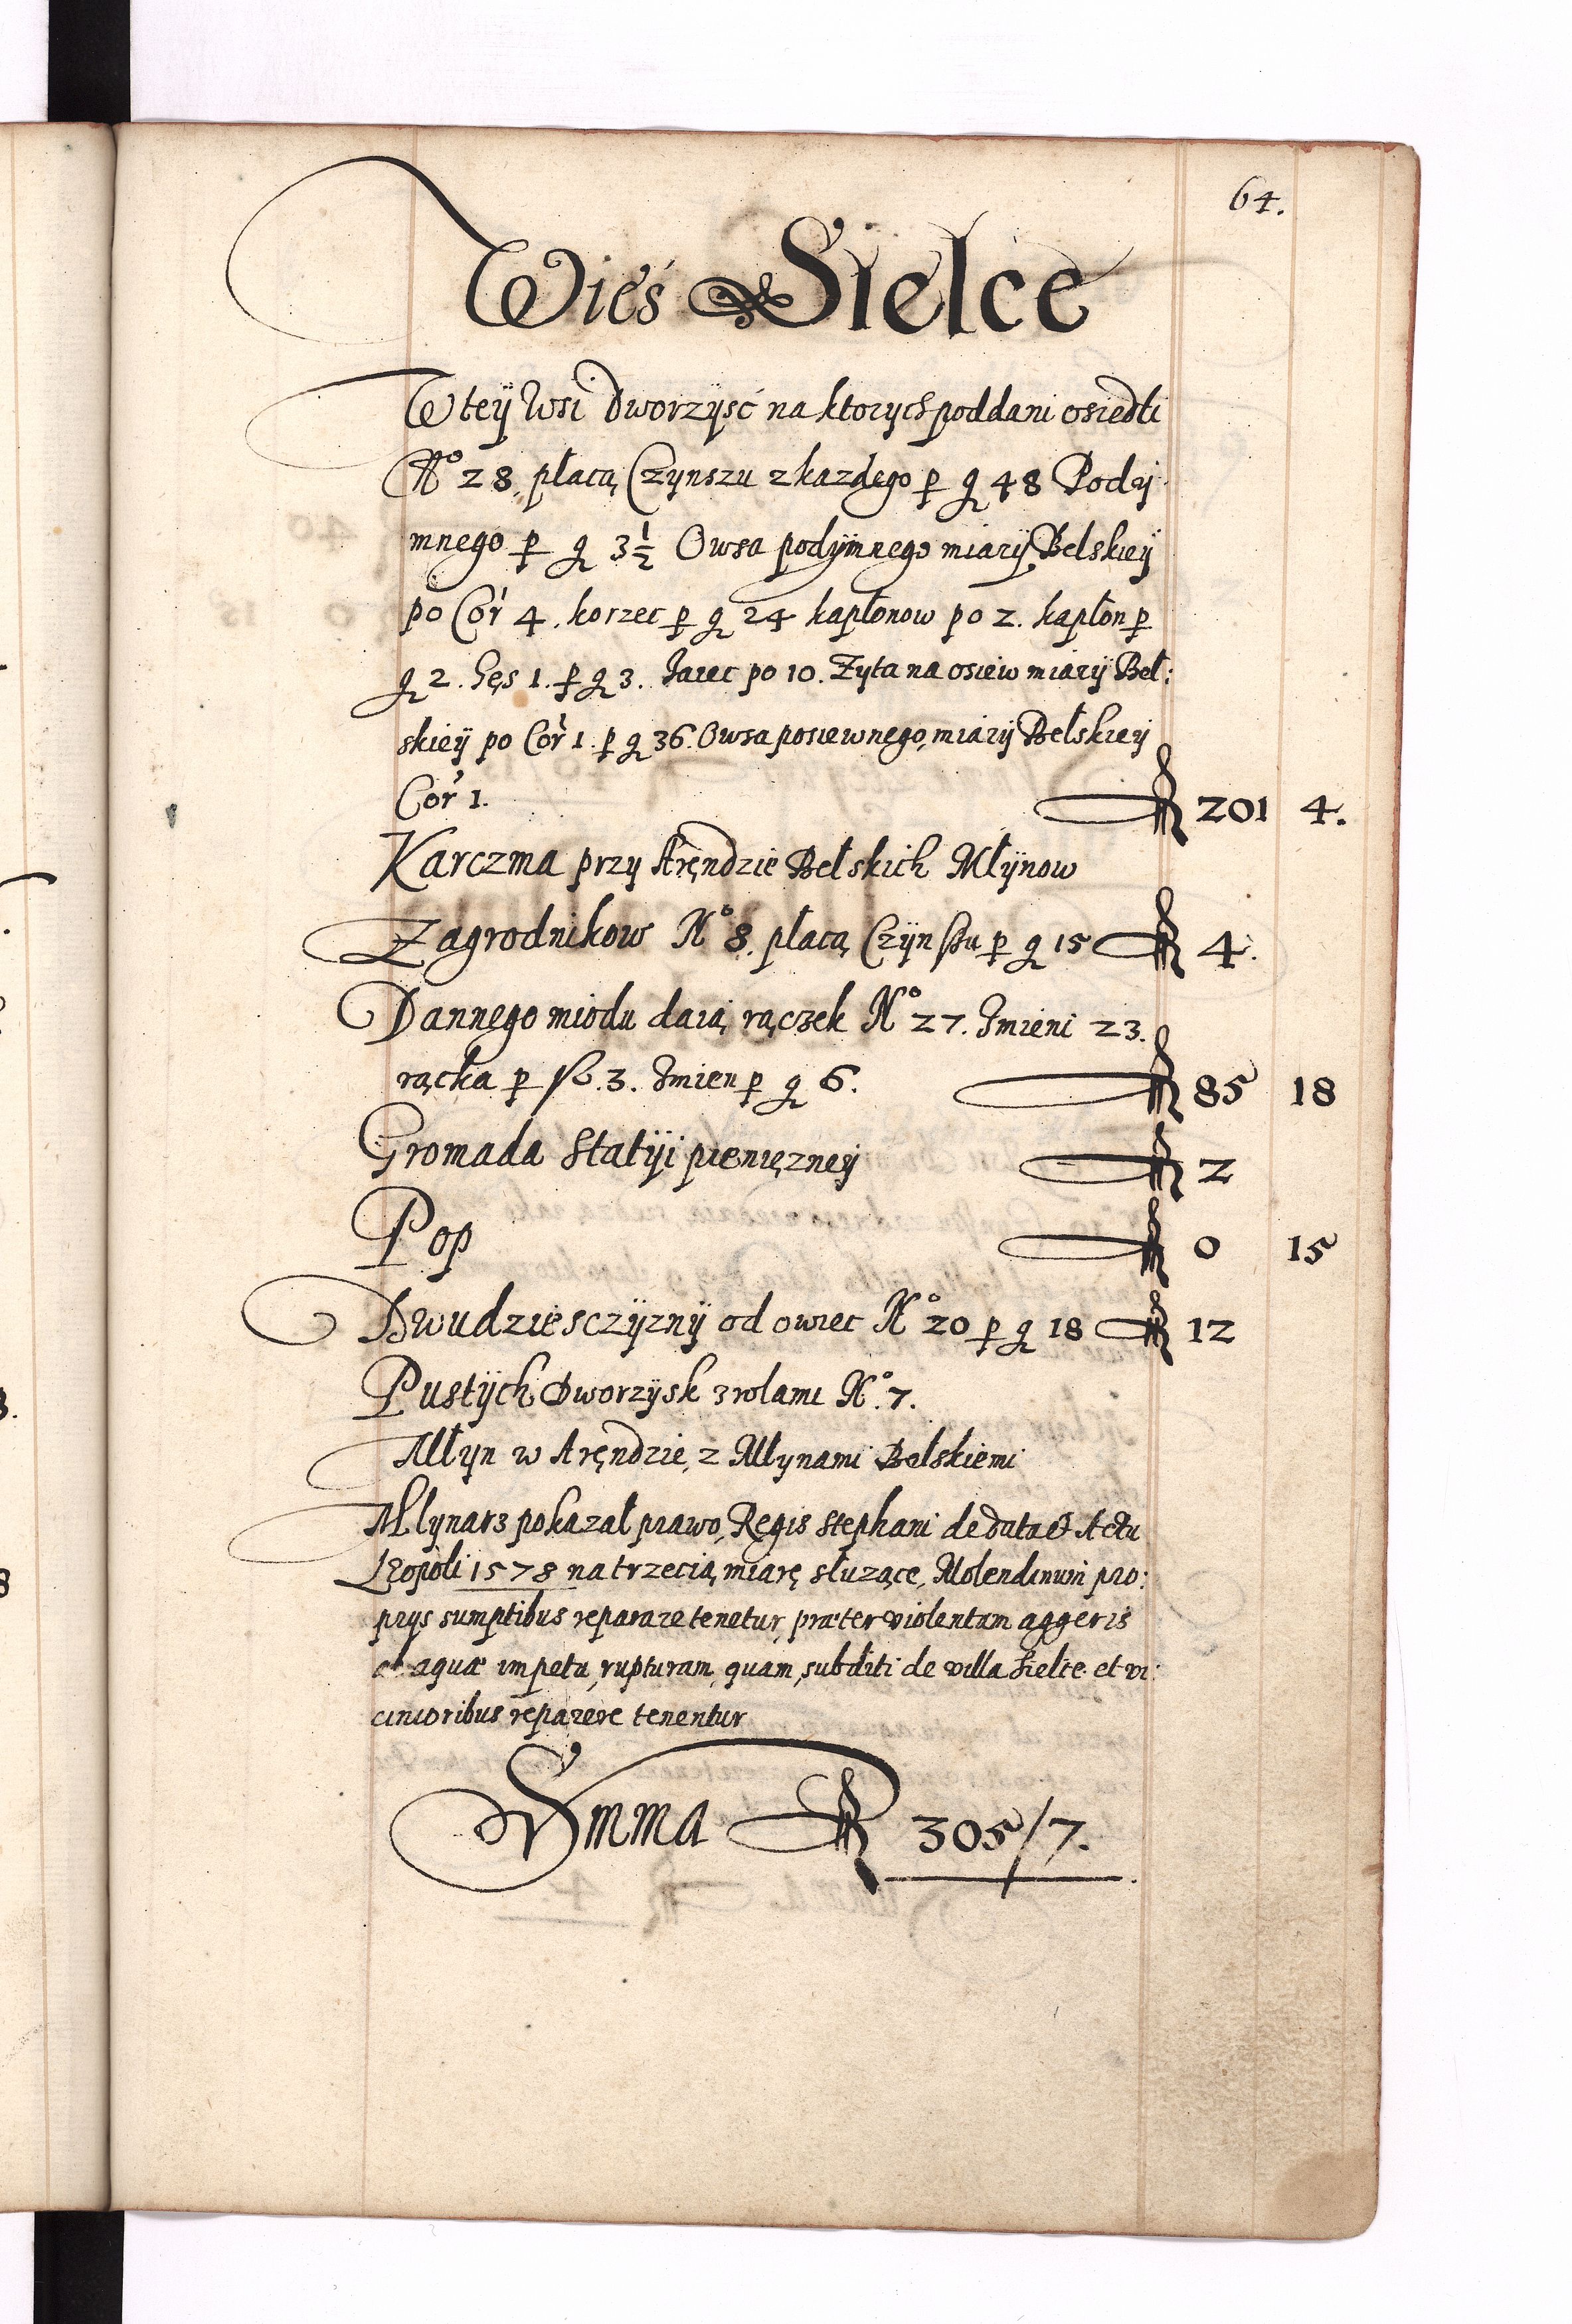 64.
Wieś Sielce
W teÿ Wsi Dworzÿsć na ktorych poddani osiedli
Nº 28. płacą Czynszu z kazdego per g 48 Pody
mnego per g 3 1/2 Owsa podÿmnego miarÿ Belskieÿ
po Cor 4. korzec per g 24 kapłonow po 2. kapłon per
g 2. Gęs 1. per g 3. Jaiec po 10. Zyta na osiew miarÿ Beł:
skieÿ po Cor 1. per g 36. Owsa posiewnego miarÿ Bełskieÿ
Cor 1. 201 4.
Karczma przy Aręndzie Bełskich Młÿnow
Zagrodnikow Nº 8. płacą Czÿnszu per g 15 4.
Dannego miodu daią rączek Nº 27. Jmieni 23.
rącka per fl. 3. Jmien per g 6. 85 18
Gromada Statÿi pieniężneÿ 2
Pop 0 15
Dwudziesczÿznÿ od owiec Nº 20 per g 18 12
Pustÿch Dworzÿsk z rolami Nº. 7.
Młyn w Aręndzie, z Młynami Bełskiemi
Młynarz pokazał prawo, Regis Stephani de data & Actu
Leopoli 1578 na trzecią miarę słuzące, Molendinum pro:
prys sumptibus reparare tenetur, præter violentam aggeris
ab aquæ impetu, rupturam, quam, subditi de villa Sielce et vi:
cinioribus reparere tenentur
Summa 305/7.